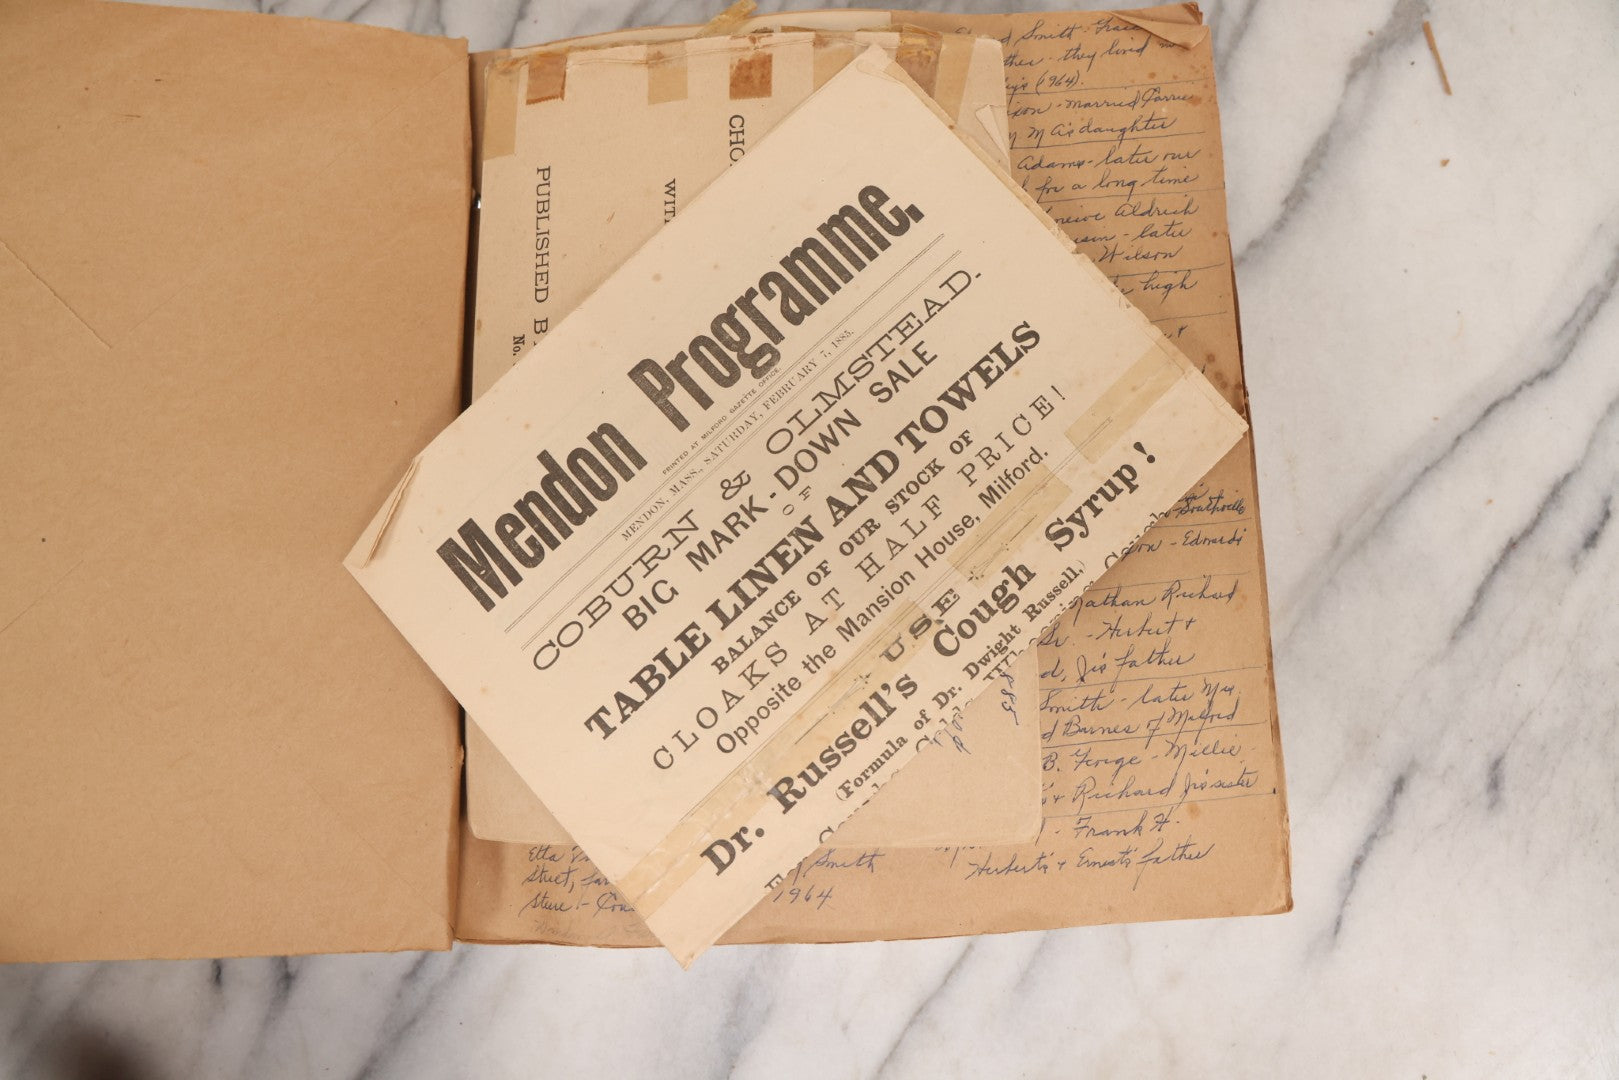 Mendon Programme.
PRINTED AT MILFORD GAZETTE OFFICE.
MENDON, MASS., SATURDAY, FEBRUARY 7, 1885.
COBURN & OLMSTEAD.
BIG MARK-DOWN SALE
OF
TABLE LINEN AND TOWELS
BALANCE OF OUR STOCK OF
CLOAKS AT HALF PRICE!
Opposite the Mansion House, Milford.
USE
Dr. Russell's Cough Syrup!
(Formula of Dr. Dwight Russell,)
1885
CHO
WIT
PUBLISHED B
No.
Smith - Grace
they lived
(1964).
Married Carrie
M A's daughter
Adams - later our
for a long time
Aldrich
later
Wilson
high
&
Southville
Edward's
Nathan Richard
Sr. - Herbert &
d, Jr's father
Smith - later Mrs.
d Barnes of Milford
B. George - Millie
& Richard Jr's sister
Frank H.
Herbert's & Ernest's father
Etta
Street,
Store -
Smith
1964